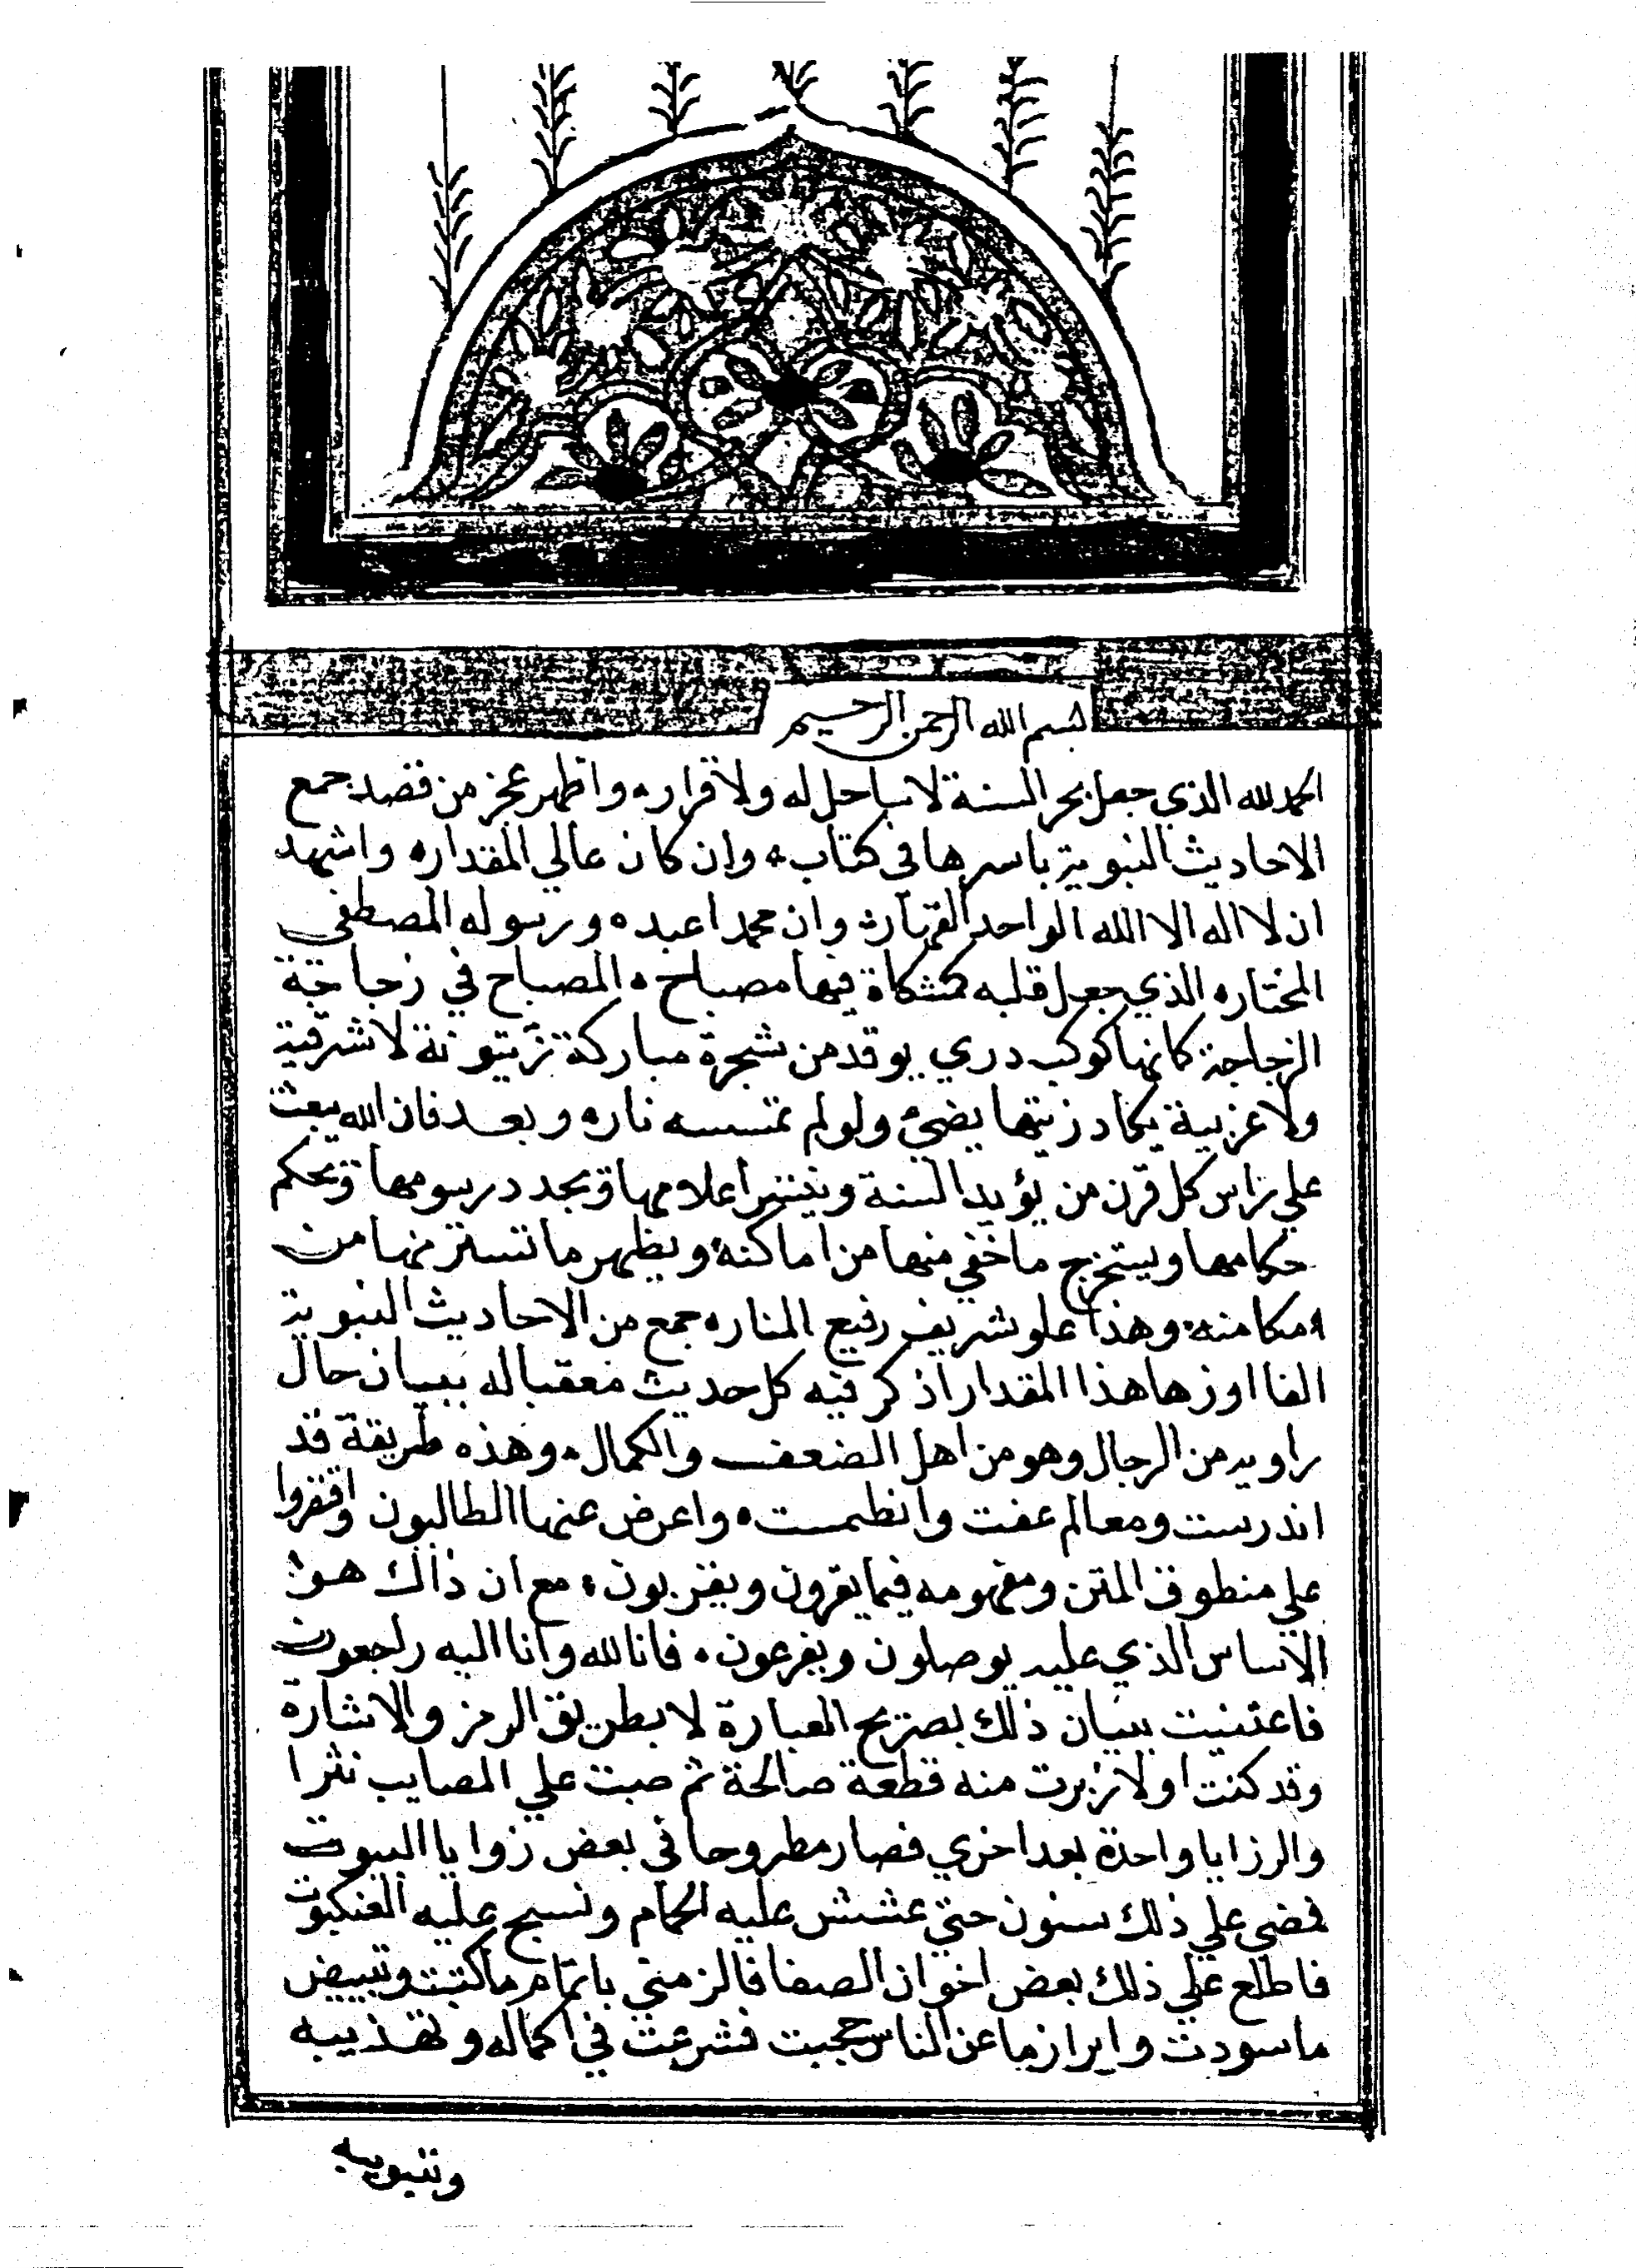 بسم الله الرحمن الرحيم
الحمد لله الذي جعل بحر السنة لا ساحل له ولا قرار ه واظهر عجز من قصد جمع
الاحاديث النبوية باسرها في كتاب ه وان كان عالي المقدار ه واشهد
ان لا اله الا الله الواحد القهار ه وان محمدا عبده ورسوله المصطفي
المختار ه الذي جعل قلبه كمشكاة فيها مصباح ه المصباح في زجاجة
الزجاجة كانها كوكب دري يوقد من شجرة مباركة زيتونة لا شرقية
ولا غربية يكاد زيتها يضئ ولو لم تمسسه نار ه وبعد فان الله يبعث
علي راس كل قرن من يؤيد السنة وينشر اعلامها ويجدد رسومها ويحكم
حكامها ويستخرج ما خفي منها من اماكنه ويظهر ما تستر منها من
مكامنه وهذا علو شريف رفيع المنار ه جمع من الاحاديث النبوية
الفا اوزها هذا المقدار اذكر فيه كل حديث معقبا له ببيان حال
راويه من الرجال وهو من اهل الضعف والكمال ه وهذه طريقة قد
اندرست ومعالم عفت وانطمست ه واعرض عنها الطالبون واقتفروا
علي منطوق المتن ومفهومه فيما يقرون ويقربون ه مع ان ذاك هو
الاساس الذي عليه يوصلون ويفرعون ه فانا لله وانا اليه راجعون
فاعتنيت ببيان ذلك بصريح العبارة لا بطريق الرمز والاشارة
وقد كنت اولا زبرت منه قطعة صالحة ثم صبت علي المصايب نثرا
والرزايا واحدة بعد اخري فصار مطروحا في بعض زوايا البيوت
فمضي علي ذلك سنون حتي عشش عليه الحمام ونسج عليه العنكبوت
فاطلع علي ذلك بعض اخوان الصفا فالزمني باتمام ما كتبت وتبييض
ما سودت وابراز ما عن الناس حجبت فشرعت في اكماله وتهذيبه
وتبويبه